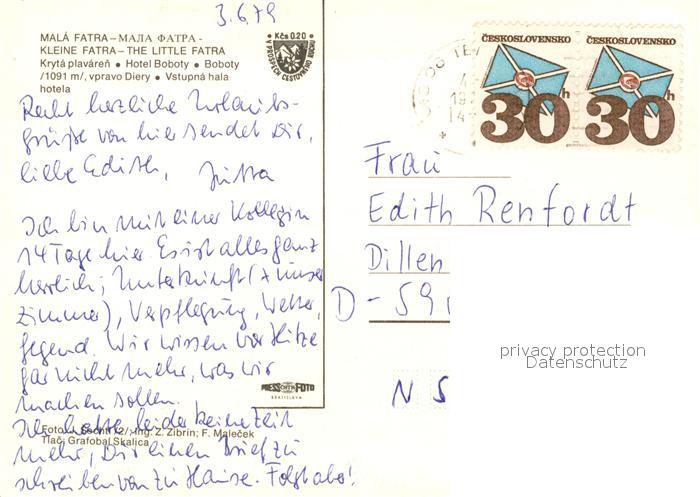 3.6.79
MALÁ FATRA – МАЛА ФАТРА -
KLEINE FATRA – THE LITTLE FATRA
Krytá plaváreň • Hotel Boboty • Boboty
/1091 m/, vpravo Diery • Vstupná hala
hotela
• Kčs 0.20 •
V PROSPECH CESTOVNÉHO RUCHU
Recht herzliche Urlaubs-
grüße von hier sendet Dir,
liebe Edith, Jutta
Ich bin mit einer Kollegin
14 Tage hier. Es ist alles ganz
herrlich; Unterkunft (2 Zimmer
), Verpflegung, Wetter,
Gegend. Wir wissen vor Hitze
gar nicht mehr, was wir
machen sollen.
Ich hatte leider keine Zeit
mehr, Dir einen Brief zu
schreiben von zu Hause. Folgt aber!
PRESSFOTO
BRATISLAVA
Ing. Z. Zibrín; F. Maleček
Tlač: Grafobal Skalica
ČESKOSLOVENSKO
30h
ČESKOSLOVENSKO
30h
Frau
Edith Renfordt
Dillen
D - 59
N S
privacy protection
Datenschutz